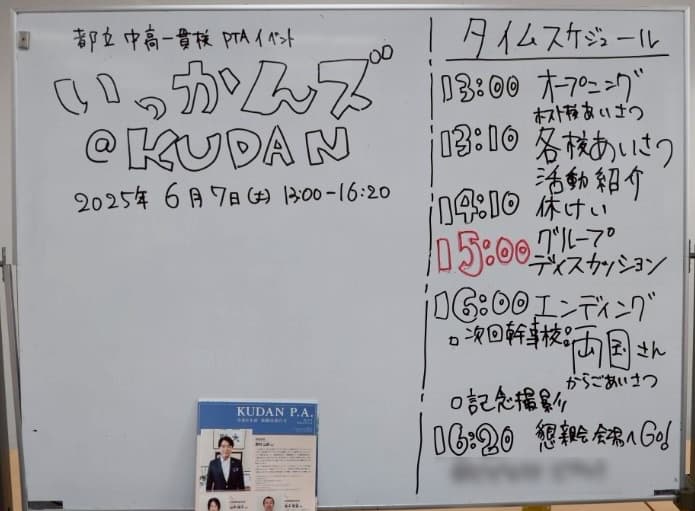 都立中高一貫校 PTAイベント
いっかんズ
@KUDAN
2025年 6月7日(土) 13:00-16:20
タイムスケジュール
13:00 オープニング
ホスト校あいさつ
13:10 各校あいさつ
活動紹介
14:10 休けい
15:00 グループ
ディスカッション
16:00 エンディング
□次回幹事校:両国さん
からごあいさつ
□記念撮影!!
16:20 懇親会会場へGO!
KUDAN P.A.